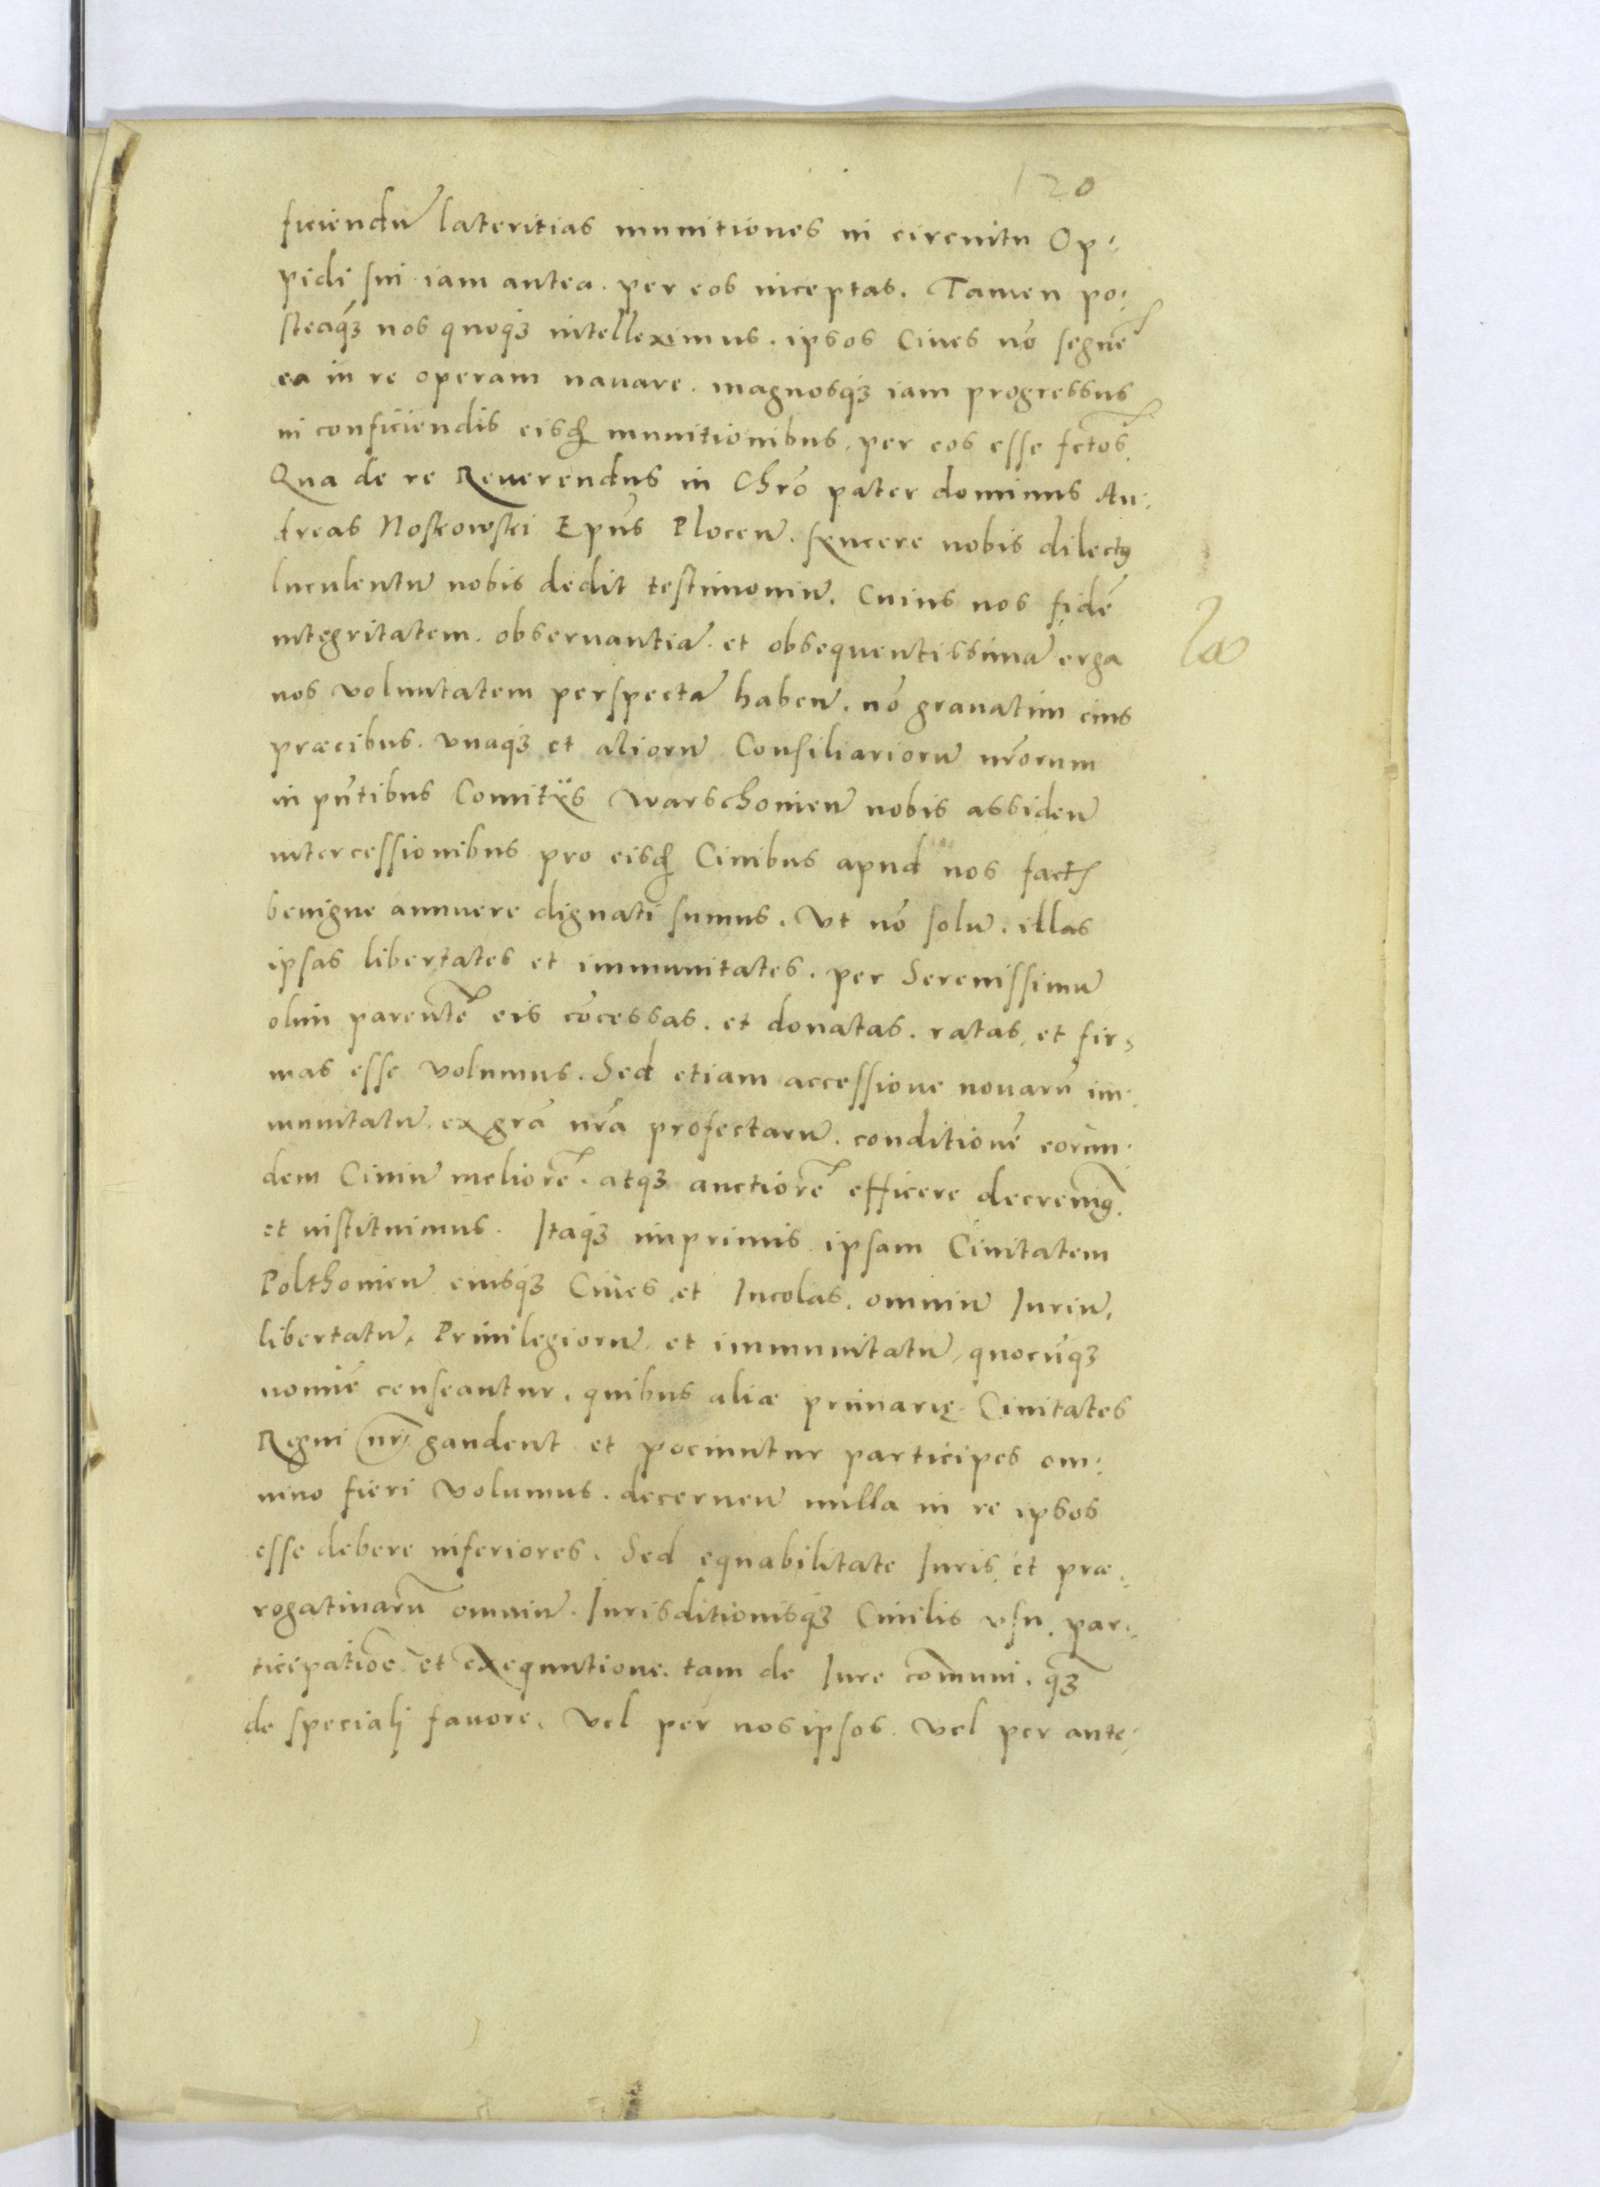 120
ficiendũ lateritias munitiones in circuitu Op:
pidi sui iam antea per eos inceptas. Tamen po:
steaq́ʒ nos quoqʒ intelleximus. ipsos Ciues nõ segnẽ
ea in re operam nauare. magnosqʒ iam progressus
in conficiendis eisd. munitionibus. per eos esse fctos.
Qua de re Reuerendus in Chrõ pater dominus An:
dreas Noskowski Ep̃us Plocen̄. syncere nobis dilectꝰ
luculentũ nobis dedit testimoniũ. Cuius nos fidẽ
integritatem. obseruantiã. et obsequentissimã erga
nos voluntatem perspectã haben̄. nõ grauatim eius
præcibus. vnaqʒ et aliorũ Consiliariorũ nr̃orum
in pñtibus Comitijs Warschouien̄ nobis assiden̄
intercessionibus pro eisd. Ciuibus apud nos fact.
benigne annuere dignati sumus. Vt nõ solũ. illas
ipsas libertates et immunitates. per Serenissimũ
olim parentẽ eis cõcessas. et donatas. ratas, et fir:
mas esse volumus. Sed etiam accessione nouarũ im:
munitatũ. ex gr̃a nr̃a profectarũ. conditionẽ eorun:
dem Ciuiũ meliorẽ. atqʒ auctiorẽ efficere decreuimꝰ.
et instituimus. Itaqʒ imprimis ipsam Ciuitatem
Polthouien̄ eiusqʒ Ciues et Incolas. omniũ Iuriũ,
libertatũ, Priuilegiorũ et immunitatũ, quocũqʒ
nomĩe censeantur. quibus aliæ primarię Ciuitates
Regni nr̃i gaudent et pociuntur participes om:
nino fieri volumus. decernen̄ nulla in re ipsos
esse debere inferiores. Sed ęquabilitate Iuris, et præ:
rogatiuarũ omniũ. Iurisditionisqʒ Ciuilis vsu, par:
ticipatiõe, et exequutione. tam de Iure cõmuni. qʒ̃
de speciali fauore. Vel per nos ipsos. Vel per ante: